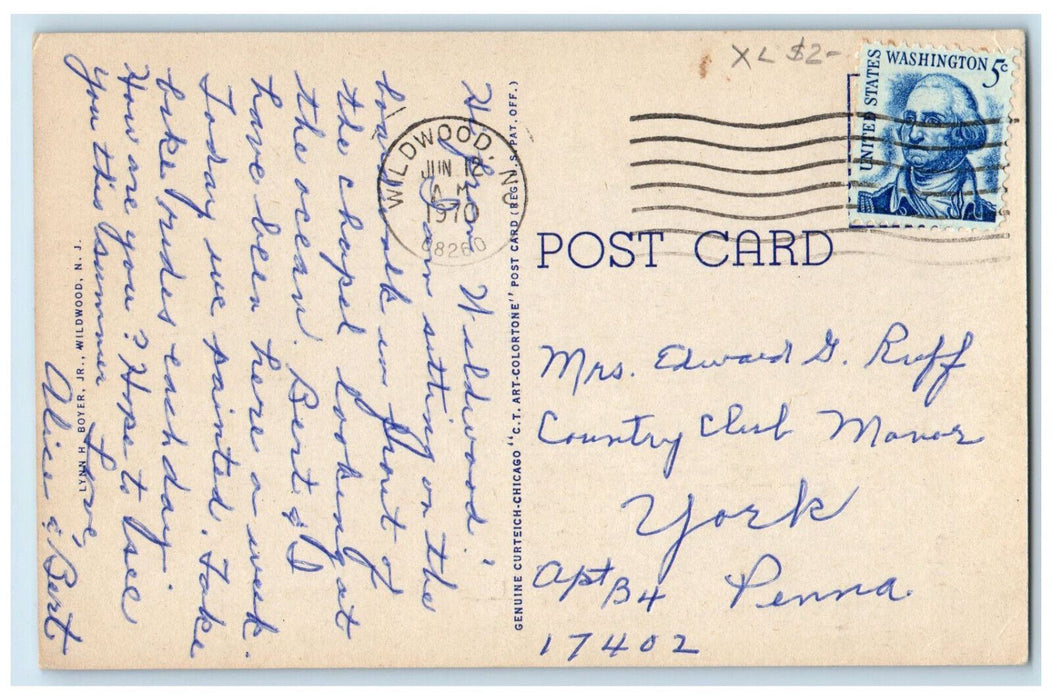 XL $2-
UNITED STATES
WASHINGTON 5c
WILDWOOD, NJ
JUN 12
1970
08260
POST CARD
Mrs. Edward G. Ruff
Country Club Manor
York
Apt B4 Penna.
17402
GENUINE CURTEICH-CHICAGO "C.T. ART-COLORTONE" POST CARD (REG. U.S. PAT. OFF.)
Hi from Wildwood!
I am sitting on the
boardwalk in front of
the chapel looking at
the ocean. Bert & I
have been here a week.
Today we painted. Take
bike rides each day.
How are you? Hope to see
you this summer
Love,
Alice & Bert
LYNN H. BOYER, JR., WILDWOOD, N. J.